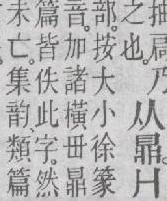 抽扃乃
之也。
从鼎冂
部。按大小徐篆
音。加諸橫毌鼎
篇皆佚此字。然
未亡。集韵類篇